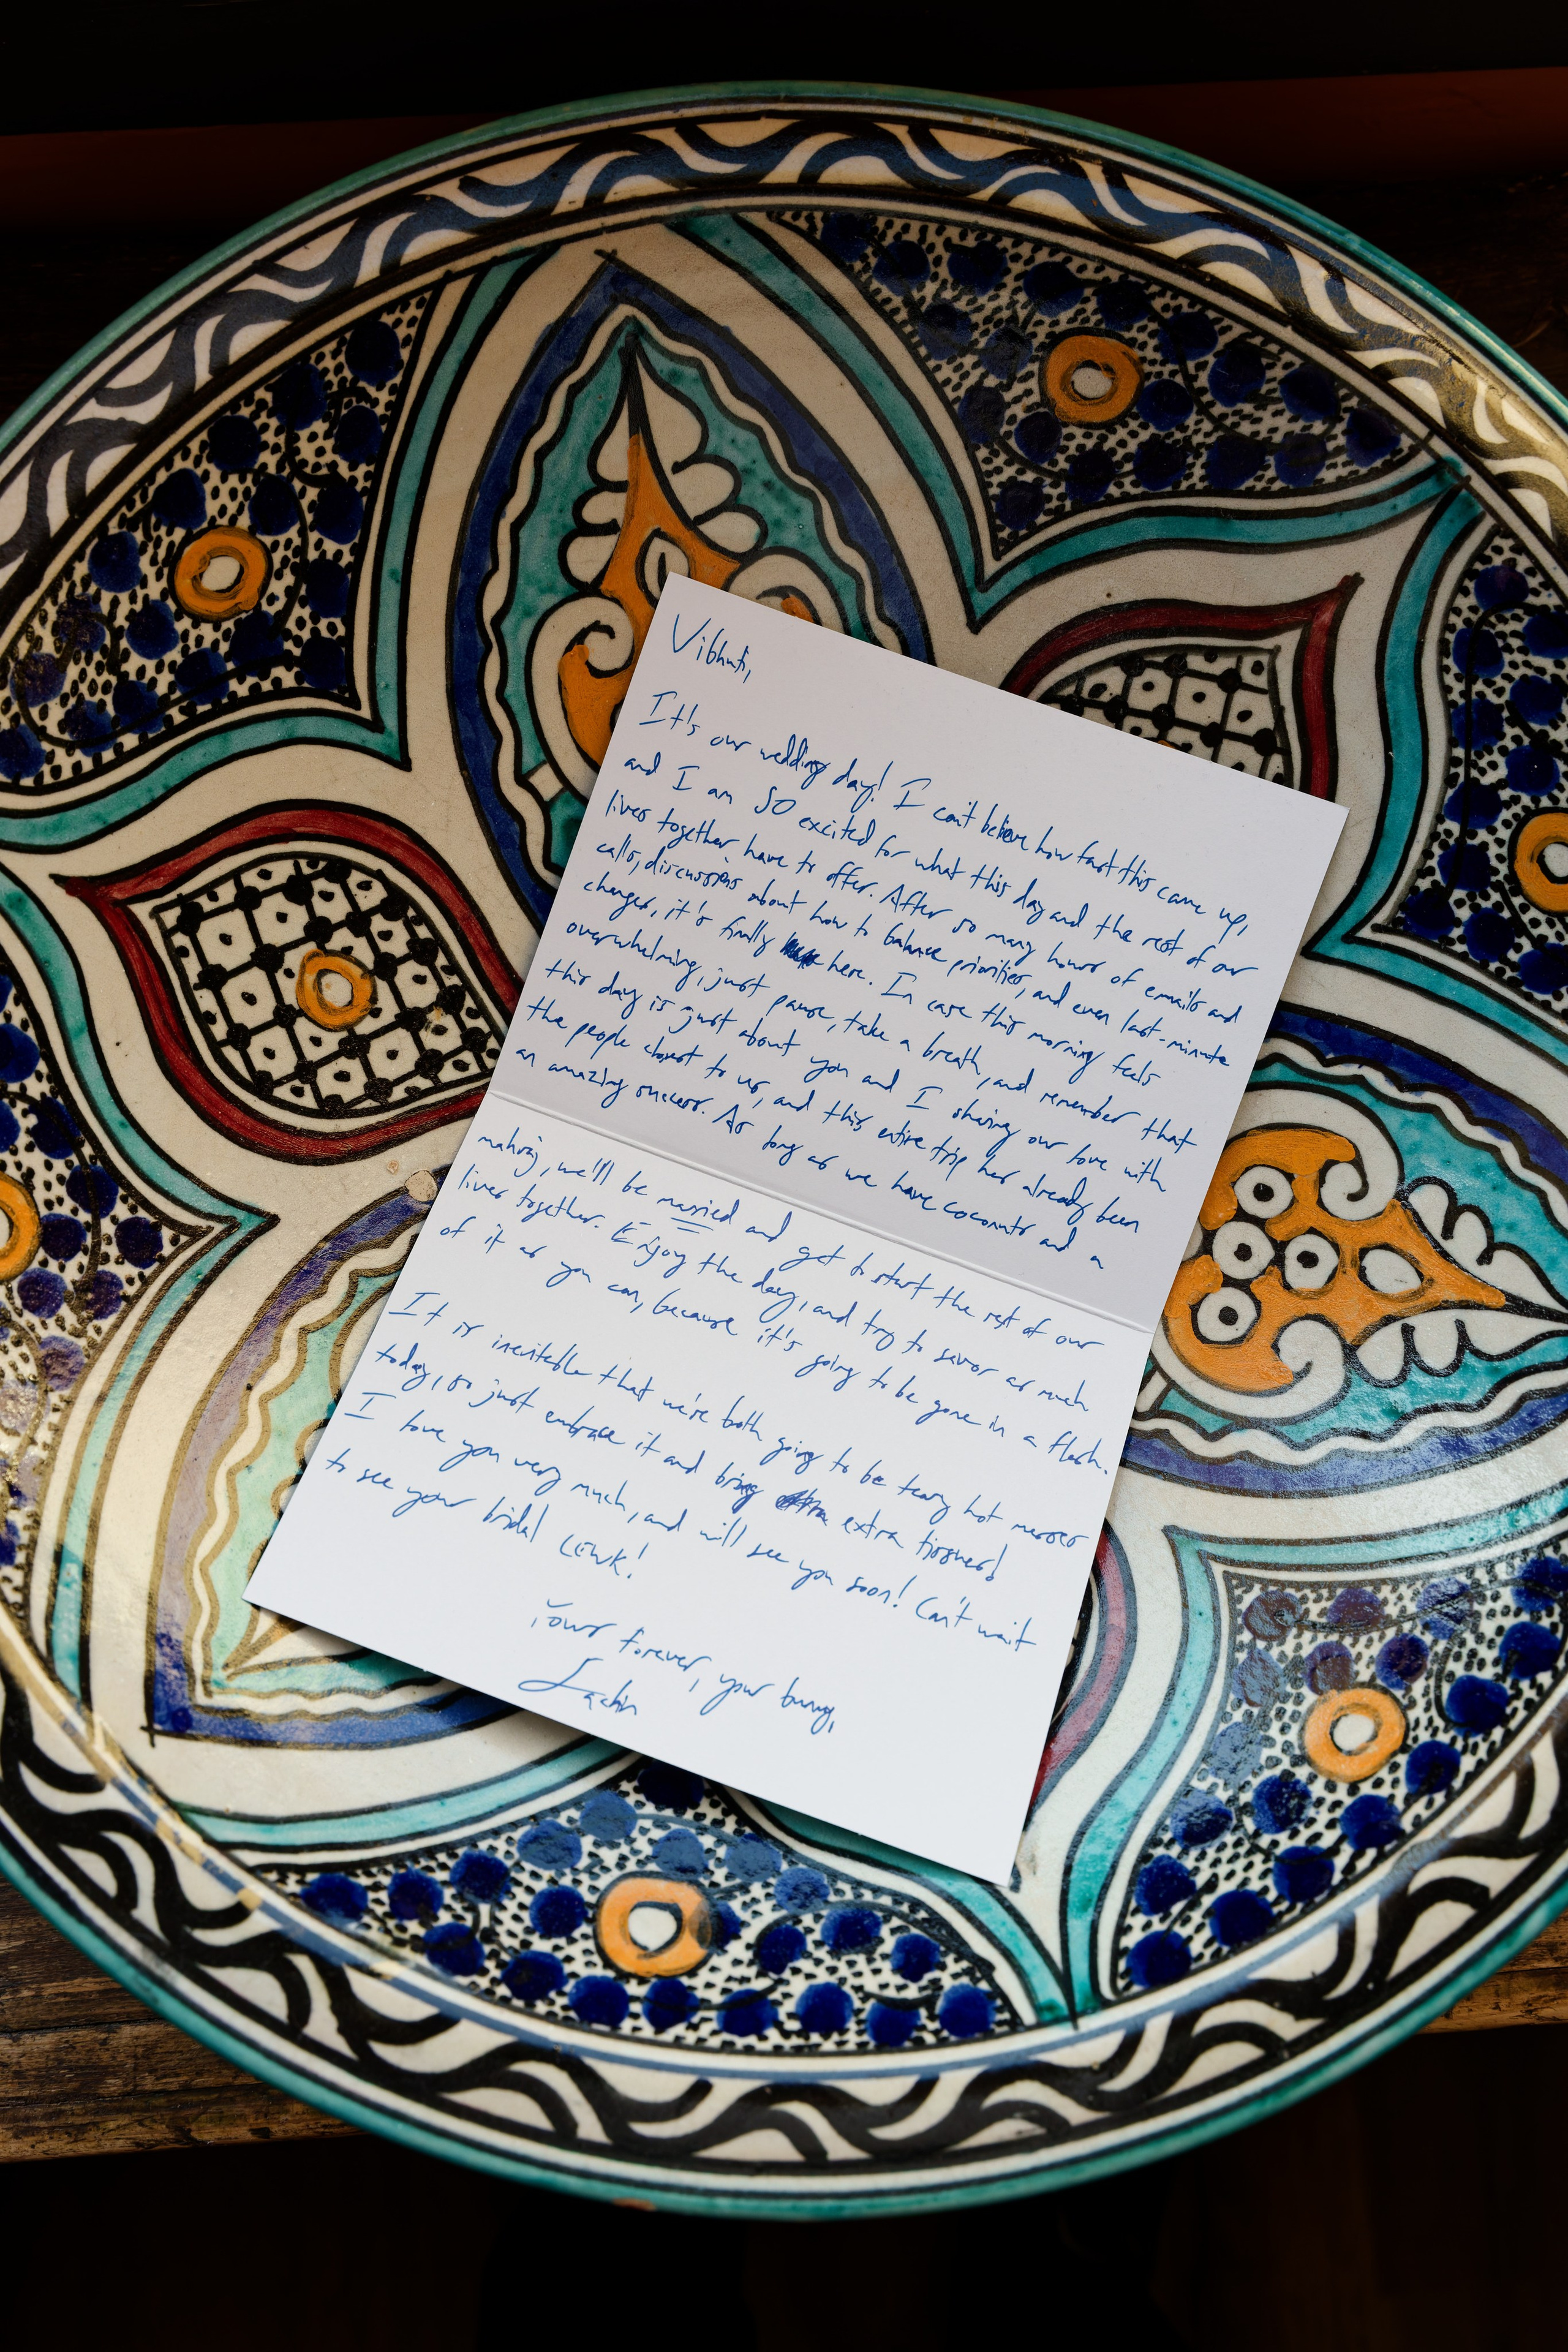 Vibhuti,
It's our wedding day! I can't believe how fast this came up,
and I am SO excited for what this day and the rest of our
lives together have to offer. After so many hours of emails and
calls, discussions about how to balance priorities, and even last-minute
changes, it's finally here. In case this morning feels
overwhelming, just pause, take a breath, and remember that
this day is just about you and I sharing our love with
the people closest to us, and this entire trip has already been
an amazing success. As long as we have coconuts and a
we'll be married and get to start the rest of our
lives together. Enjoy the day, and try to savor as much
of it as you can, because it's going to be gone in a flash.
It is inevitable that we're both going to be teary hot messes
today, so just embrace it and bring extra tissues!
I love you very much, and will see you soon! Can't wait
to see your bridal LEWK!
Yours forever, your bunny,
Sachin